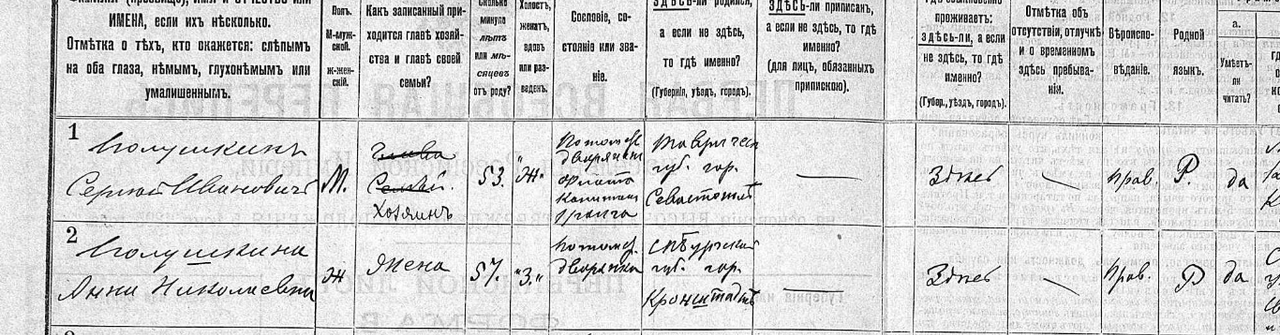 ИМЕНА, если ихъ нѣсколько.
Отмѣтка о тѣхъ, кто окажется: слѣпымъ
на оба глаза, нѣмымъ, глухонѣмымъ или
умалишеннымъ.
Полъ.
М-муж-
ской.
Ж-жен-
скій.
Какъ записанный при-
ходится главѣ хозяй-
ства и главѣ своей
семьи?
Сколько
минуло
лѣтъ
или мѣ-
сяцевъ
отъ роду?
Холостъ,
женатъ,
вдовъ
или раз-
веденъ.
Сословіе, со-
стояніе или зва-
ніе.
ЗДѢСЬ-ли родился,
а если не здѣсь,
то гдѣ именно?
(Губернія, уѣздъ, городъ).
ЗДѢСЬ-ли приписанъ,
а если не здѣсь, то гдѣ
именно?
(для лицъ, обязанныхъ
припискою).
проживаетъ:
ЗДѢСЬ-ли, а если
не здѣсь, то гдѣ
именно?
(Губер., уѣздъ, городъ).
Отмѣтка объ
отсутствіи, отлучкѣ
и о временномъ
здѣсь пребыва-
ніи.
Вѣроиспо-
вѣданіе.
Родной
языкъ.
а.
Умѣетъ-
ли
читать?
1
Полушкинъ
Сергѣй Ивановичъ
М.
Глава
Семьи.
Хозяинъ
53.
Ж.
Потом.
дворянинъ
флота
капитанъ
ранга
Таврическ
губ. гор.
Севастополь
Здѣсь
Прав.
Р.
да
2
Полушкина
Анна Николаевна
Ж
Жена
57.
"З."
Потом.
дворянка
СПБургской
губ. гор.
Кронштадтъ
Здѣсь
Прав.
Р
да